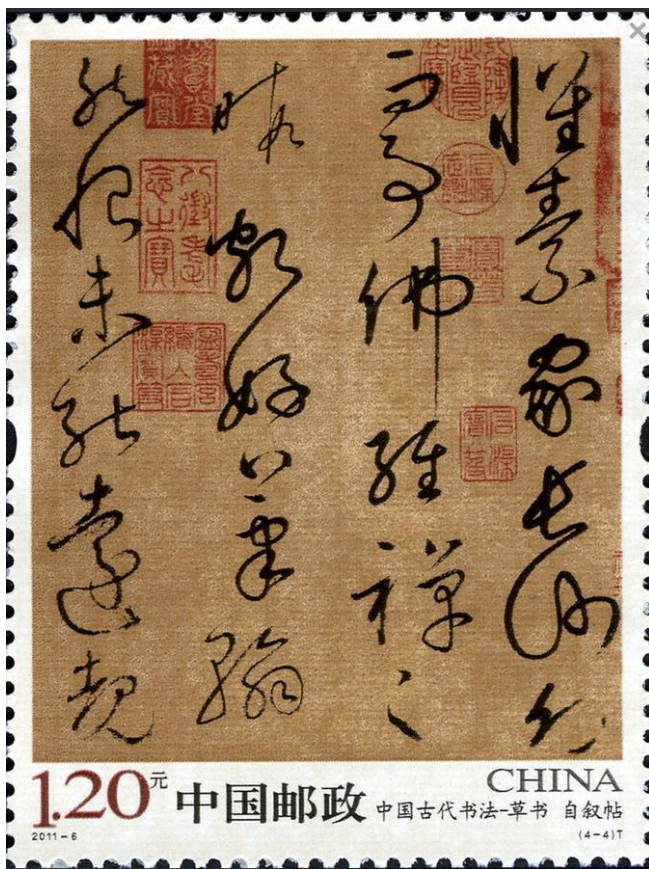 懷素家長沙幼
而事佛經禪之
暇頗好筆翰
然恨未能遠覩
石渠寶笈
八徵耄念之寶
1.20元
中国邮政
CHINA
中国古代书法-草书 自叙帖
2011-6
(4-4)T